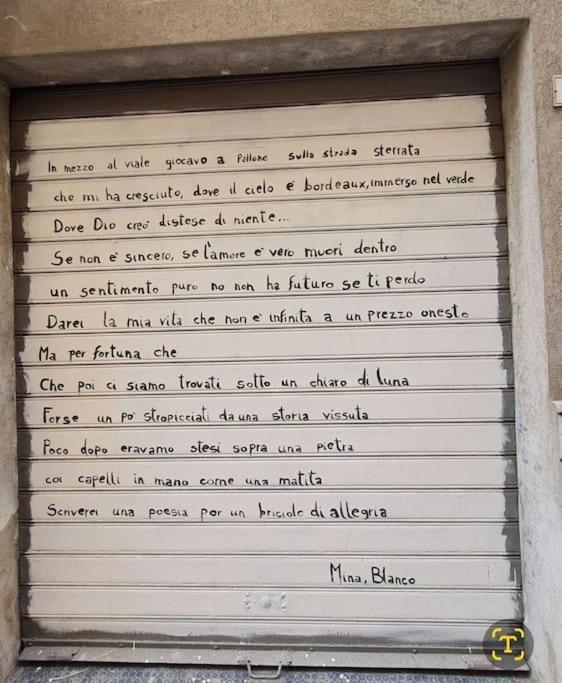 In mezzo al viale giocavo a Pallone sulla strada sterrata
che mi ha cresciuto, dove il cielo è bordeaux, immerso nel verde
Dove Dio creò distese di niente...
Se non è sincero, se l'amore è vero muori dentro
un sentimento puro no non ha futuro se ti perdo
Darei la mia vita che non è infinita a un prezzo onesto
Ma per fortuna che
Che poi ci siamo trovati sotto un chiaro di luna
Forse un po' stropicciati da una storia vissuta
Poco dopo eravamo stesi sopra una pietra
coi capelli in mano come una matita
Scriverei una poesia per un briciolo di allegria
Mina, Blanco